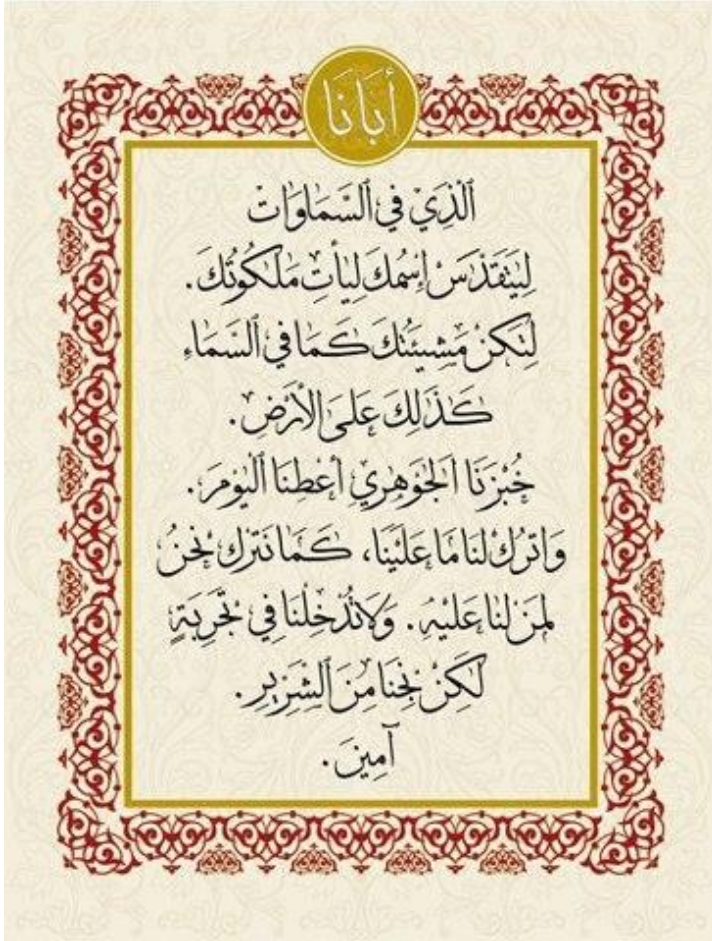 أَبَانَا
اَلَّذِيْ فِي اَلسَّمَاوَاتْ
لِيَتَقَدَّسَ إِسْمُكَ لِيَأْتِ مَلَكُوتُكَ.
لِتَكُنْ مَشِيئَتُكَ كَمَا فِي اَلسَّمَاءِ
كَذَلِكَ عَلَى اَلأَرْضِ.
خُبْزَنَا اَلْجَوْهَرِيَّ أَعْطِنَا اَلْيَوْمَ.
وَاتْرُكْ لَنَا مَا عَلَيْنَا، كَمَا نَتْرُكُ نَحْنُ
لِمَنْ لَنَا عَلَيْهِ. وَلَا تُدْخِلْنَا فِي تَجْرِبَةٍ
لَكِنْ نَجِّنَا مِنَ اَلشِّرِّيرِ.
آمِينَ.